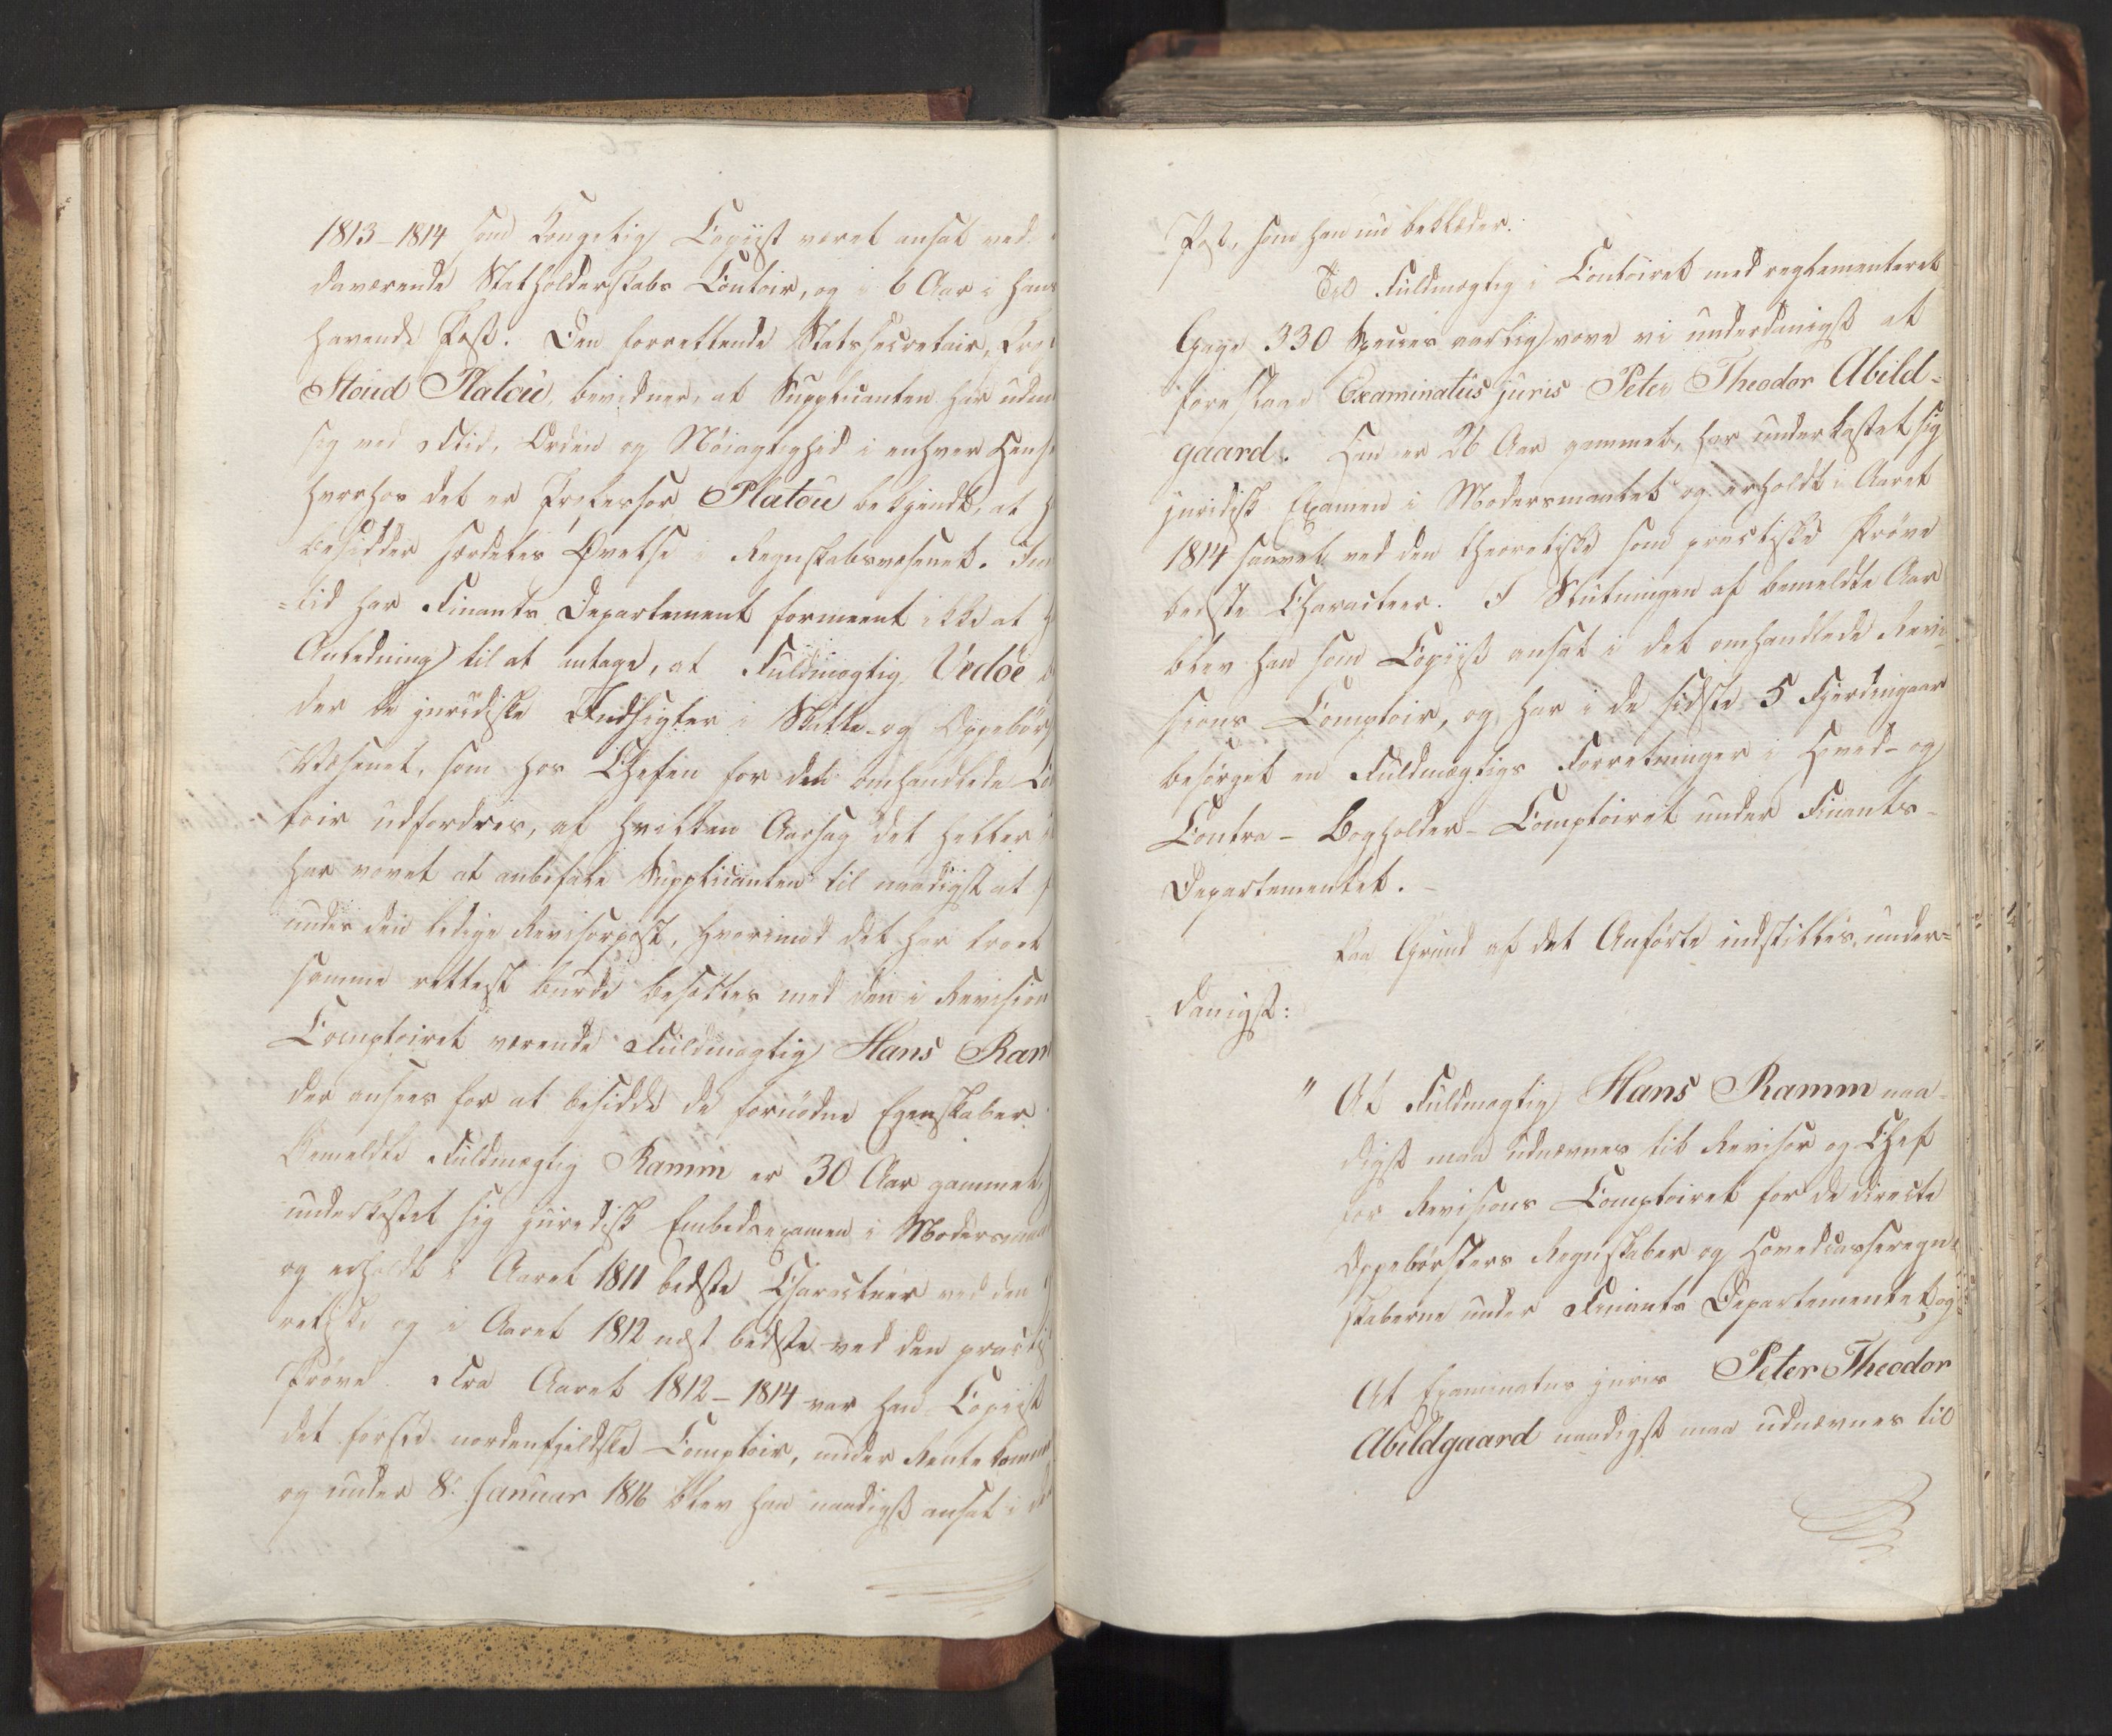 1813–1814 som Kongelig Copiist været ansat ved
daværende Statholderskabs Contoir, og i 6 Aar i hans
havende Post. Den forrettende Statssecretair,
Stoud Platou, bevidner, at Supplicanten har udm
sig ved Flid, Orden og Nøiagtighed i enhver Hense
hvorhos det er Professor Platou bekjendt, at h
besidder særdeles Øvelse i Regnskabsvæsenet. Im
=tid har Finants Departement formeent ikke at h
Anledning til at antage, at Fuldmægtig Vedöe
der de juridiske Indsigter i Skatte- og Oppebør
Væsenet, som hos Chefen for det omhandlede Co
toir udfordres, af hvilken Aarsag det heller
har vovet at anbefale Supplicanten til naadigst at
under den ledige Revisorpost, hvorimod det har troet
samme rettest burde besættes med den i Revision
Comptoiret værende Fuldmægtig Hans Ram
der ansees for at besidde de fornødne Egenskaber.
Bemeldte Fuldmægtig Ramm er 30 Aar gammel,
underkastet sig juridisk Embedsexamen i Modersmaa
og erholdt i Aaret 1811 bedste Characteer ved den
retiske og i Aaret 1812 næst bedste ved den practi
Prøve. Fra Aaret 1812–1814 var han Copiist
det første nordenfjeldske Comptoir, under Rentekamme
og under 8. Januar 1816 blev han naadigst ansat i d
Post, som han nu beklæder.
Til Fuldmægtig i Contoiret med reglementeret
Gage 330 Species aarlig vove vi underdanigst at
foreslaae Examinatus juris Peter Theodor Abild-
gaard. Han er 26 Aar gammel, har underkastet sig
juridisk Examen i Modersmaalet og erholdt i Aaret
1814 saavel ved den theoretiske som practiske Prøve
bedste Characteer. I Slutningen af bemeldte Aar
blev han som Copiist ansat i det omhandlede Revi-
sions Comptoir, og har i de sidste 5 Fjerdingaar
besørget en Fuldmægtigs Forretninger i Hoved- og
Contra- Bogholder-Comptoiret under Finants-
Departementet.
Paa Grund af det Anførte indstilles under=
danigst:
" At Fuldmægtig Hans Ramm naa-
digst maa udnævnes til Revisor og Chef
for Revisions Comptoiret for de directe
Oppebørslers Regnskaber og Hovedcasseregn-
skaberne under Finants Departementet, og
At Examinatus juris Peter Theodor
Abildgaard naadigst maa udnævnes til